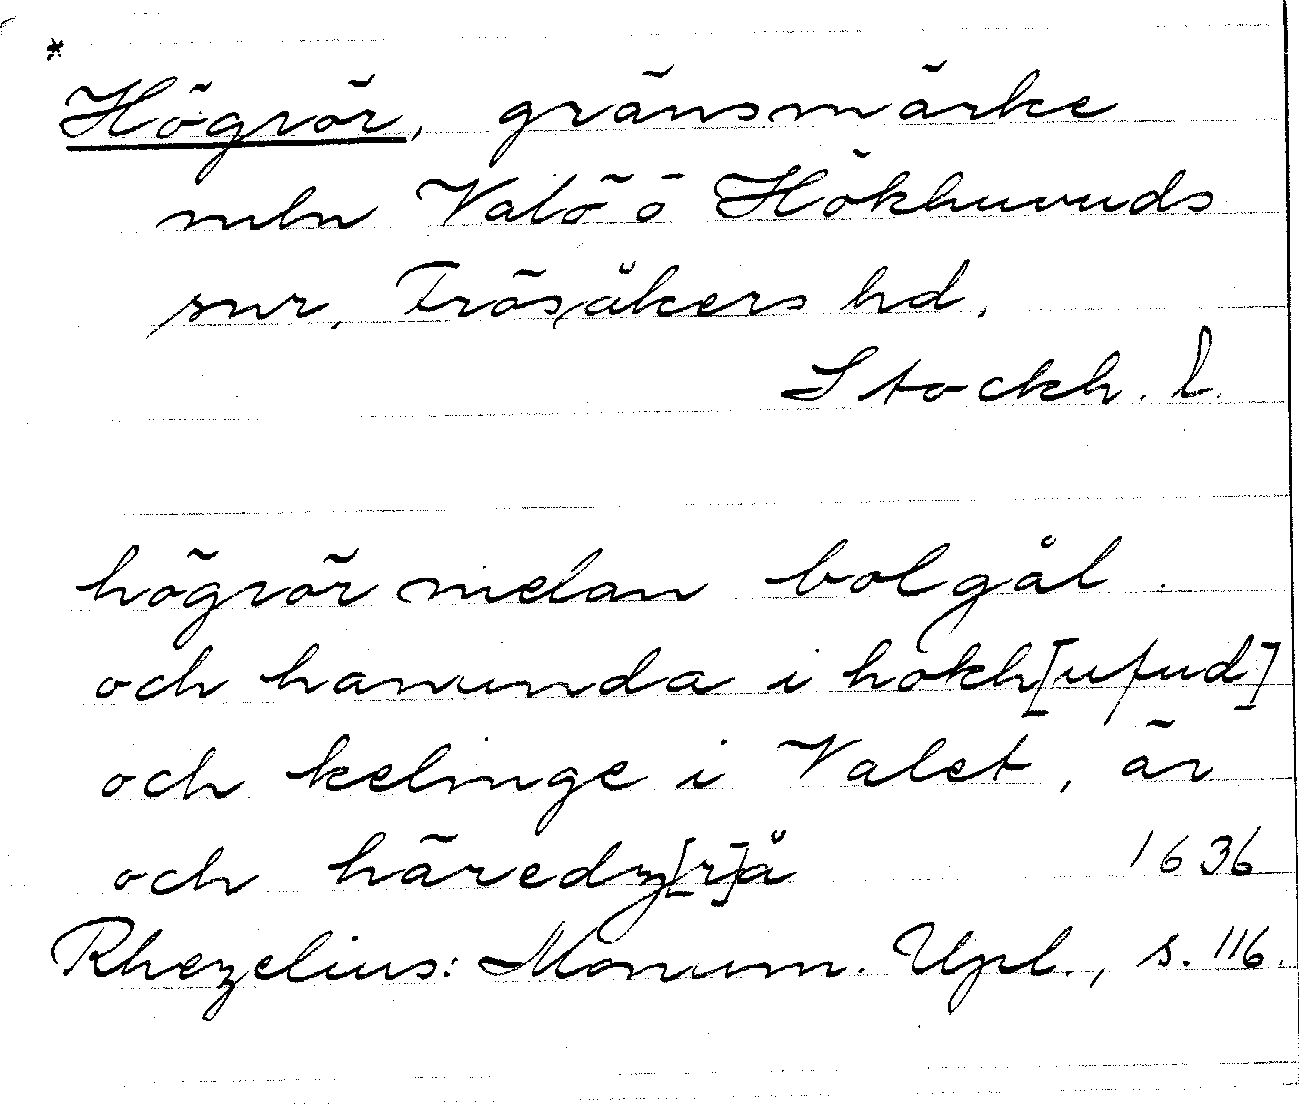 *
Högrör, gränsmärke
mln Valö o Hökhuvuds
snr, Frösåkers hd.
Stockh. l.
högrör melan bolgål
och hanunda i hökh[ufud]
och kelinge i Valet, är
och häredz[r]å 1636
Rhezelius: Monum. Upl., s. 116.